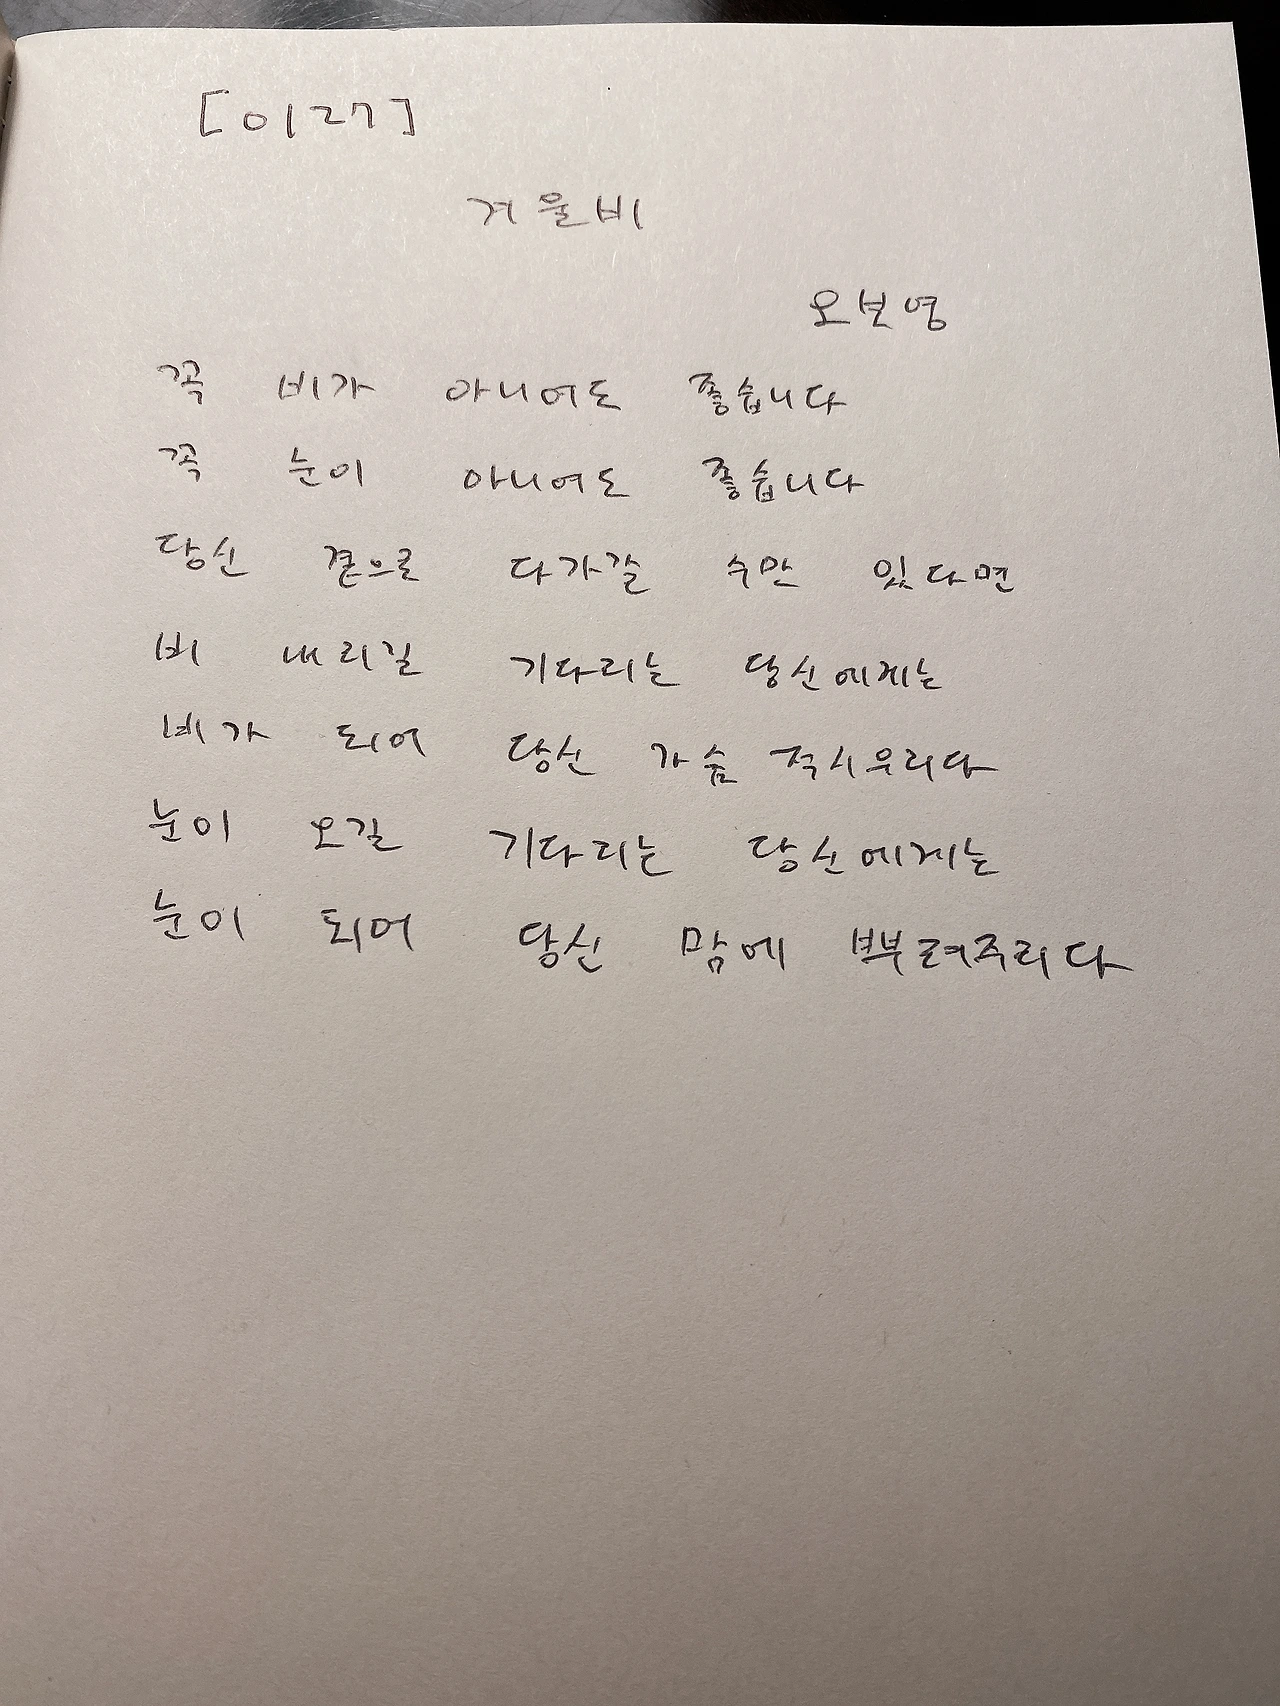 [0127]
겨울비
오보영
꼭 비가 아니어도 좋습니다
꼭 눈이 아니어도 좋습니다
당신 곁으로 다가갈 수만 있다면
비 내리길 기다리는 당신에게는
비가 되어 당신 가슴 적시우리다
눈이 오길 기다리는 당신에게는
눈이 되어 당신 맘에 뿌려주리다